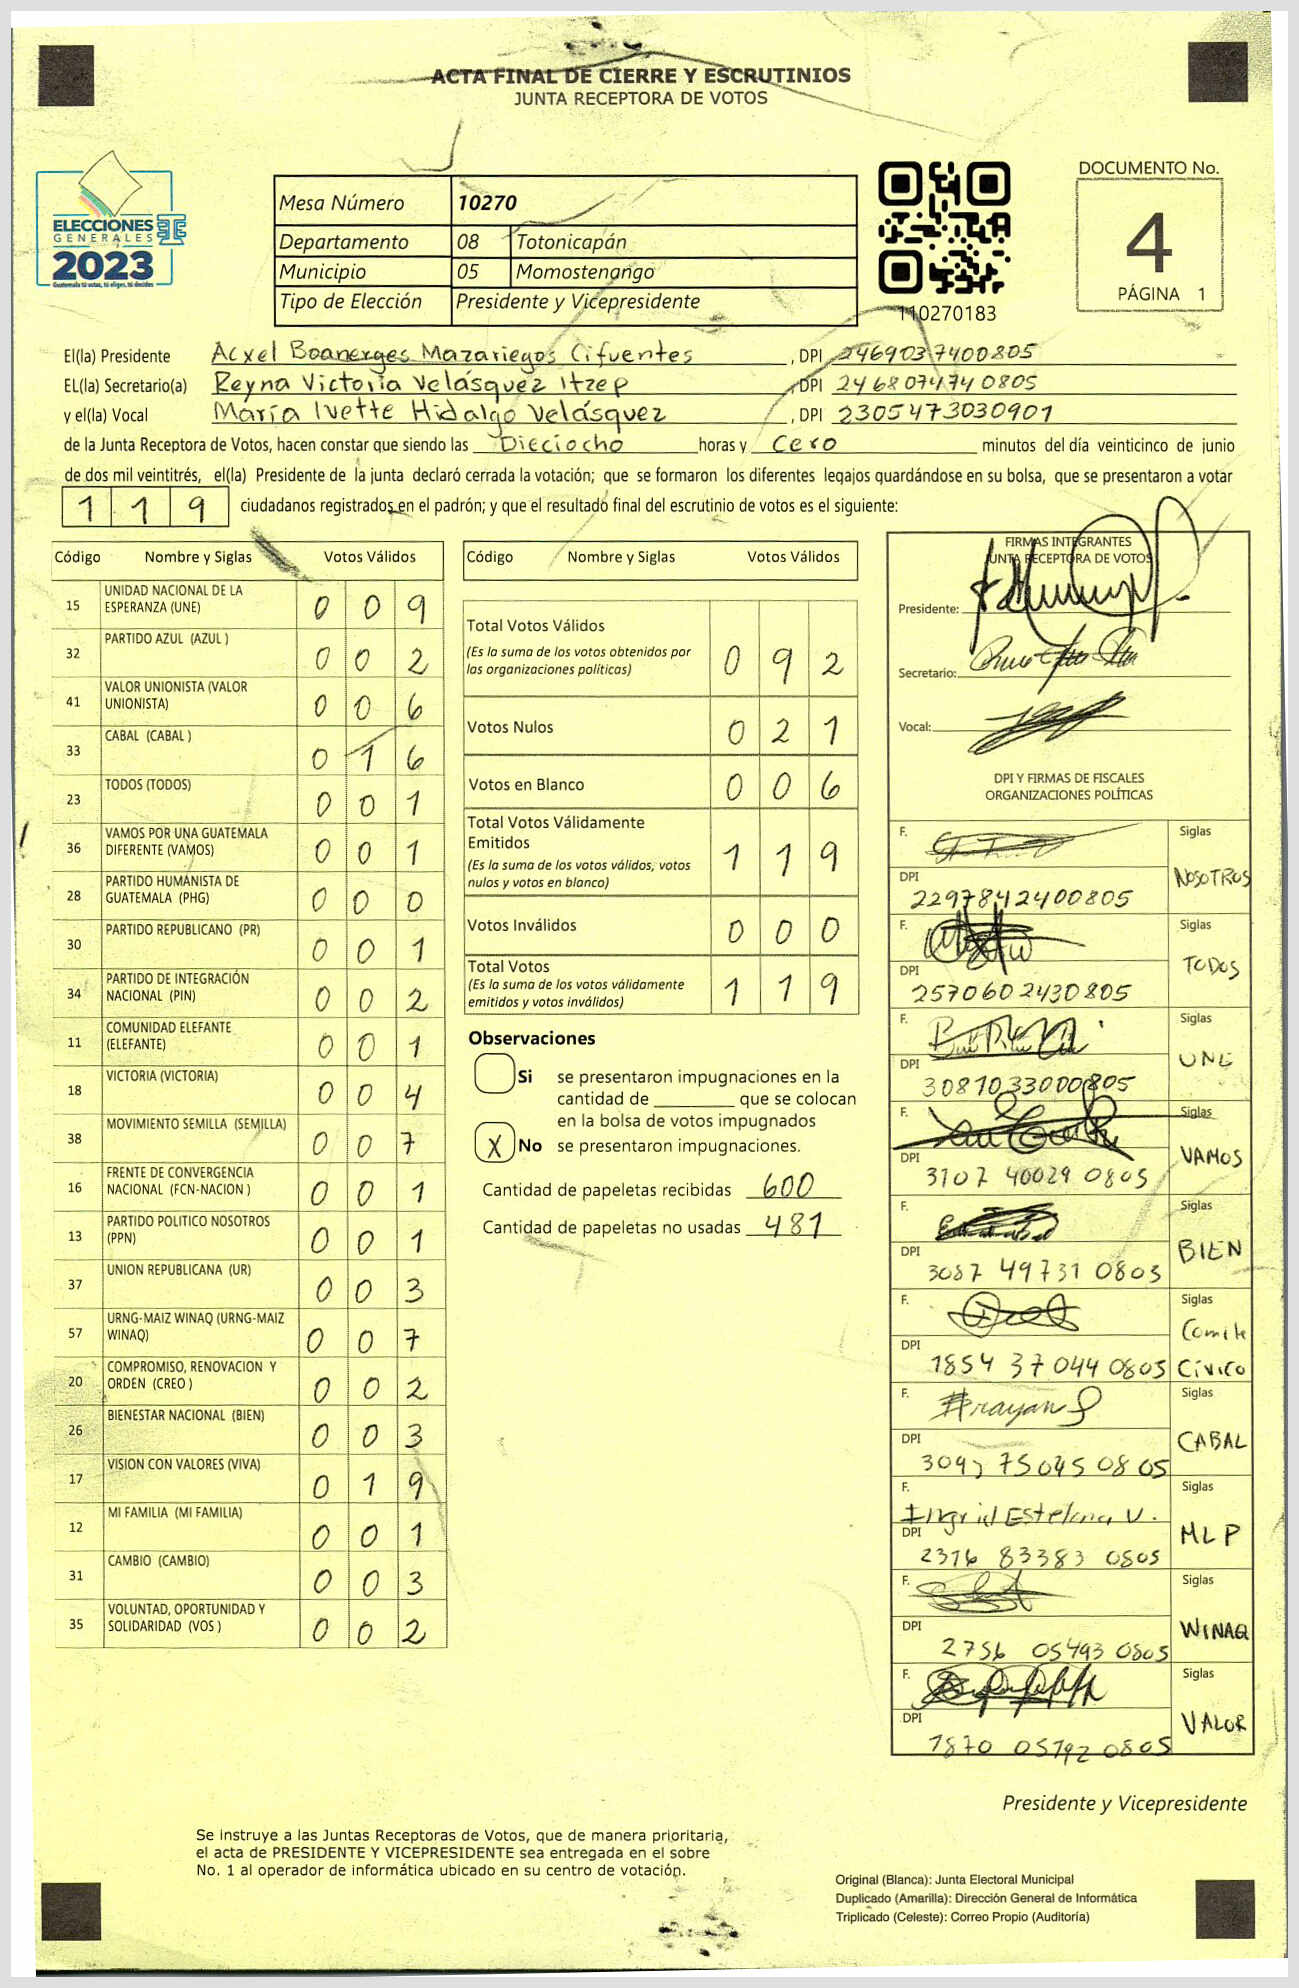 ACTA FINAL DE CIERRE Y ESCRUTINIOS
JUNTA RECEPTORA DE VOTOS
ELECCIONES
GENERALES
2023
Guatemala tú votas, tú eliges, tú decides
Mesa Número 10270
Departamento 08 Totonicapán
Municipio 05 Momostenango
Tipo de Elección Presidente y Vicepresidente
110270183
DOCUMENTO No.
4
PÁGINA 1
El(la) Presidente Acxel Boanerges Mazariegos Cifuentes , DPI 2469037400805
EL(la) Secretario(a) Reyna Victoria Velásquez Itzep , DPI 2468074740805
y el(la) Vocal María Ivette Hidalgo Velásquez , DPI 2305473030901
de la Junta Receptora de Votos, hacen constar que siendo las Dieciocho horas y Cero minutos del día veinticinco de junio
de dos mil veintitrés, el(la) Presidente de la junta declaró cerrada la votación; que se formaron los diferentes legajos quardándose en su bolsa, que se presentaron a votar
1 1 9 ciudadanos registrados en el padrón; y que el resultado final del escrutinio de votos es el siguiente:
Código Nombre y Siglas Votos Válidos
15 UNIDAD NACIONAL DE LA ESPERANZA (UNE) 0 0 9
32 PARTIDO AZUL (AZUL ) 0 0 2
41 VALOR UNIONISTA (VALOR UNIONISTA) 0 0 6
33 CABAL (CABAL ) 0 1 6
23 TODOS (TODOS) 0 0 1
36 VAMOS POR UNA GUATEMALA DIFERENTE (VAMOS) 0 0 1
28 PARTIDO HUMANISTA DE GUATEMALA (PHG) 0 0 0
30 PARTIDO REPUBLICANO (PR) 0 0 1
34 PARTIDO DE INTEGRACIÓN NACIONAL (PIN) 0 0 2
11 COMUNIDAD ELEFANTE (ELEFANTE) 0 0 1
18 VICTORIA (VICTORIA) 0 0 4
38 MOVIMIENTO SEMILLA (SEMILLA) 0 0 7
16 FRENTE DE CONVERGENCIA NACIONAL (FCN-NACION ) 0 0 1
13 PARTIDO POLITICO NOSOTROS (PPN) 0 0 1
37 UNION REPUBLICANA (UR) 0 0 3
57 URNG-MAIZ WINAQ (URNG-MAIZ WINAQ) 0 0 7
20 COMPROMISO, RENOVACION Y ORDEN (CREO ) 0 0 2
26 BIENESTAR NACIONAL (BIEN) 0 0 3
17 VISION CON VALORES (VIVA) 0 1 9
12 MI FAMILIA (MI FAMILIA) 0 0 1
31 CAMBIO (CAMBIO) 0 0 3
35 VOLUNTAD, OPORTUNIDAD Y SOLIDARIDAD (VOS ) 0 0 2
Código Nombre y Siglas Votos Válidos
Total Votos Válidos
(Es la suma de los votos obtenidos por
las organizaciones políticas) 0 9 2
Votos Nulos 0 2 1
Votos en Blanco 0 0 6
Total Votos Válidamente
Emitidos
(Es la suma de los votos válidos, votos
nulos y votos en blanco) 1 1 9
Votos Inválidos 0 0 0
Total Votos
(Es la suma de los votos válidamente
emitidos y votos inválidos) 1 1 9
Observaciones
Si se presentaron impugnaciones en la
cantidad de ________ que se colocan
en la bolsa de votos impugnados
X No se presentaron impugnaciones.
Cantidad de papeletas recibidas 600
Cantidad de papeletas no usadas 481
FIRMAS INTEGRANTES
JUNTA RECEPTORA DE VOTOS
Presidente:
Secretario:
Vocal:
DPI Y FIRMAS DE FISCALES
ORGANIZACIONES POLÍTICAS
F. Siglas
NOSOTROS
DPI 2297842400805
F. Siglas
TODOS
DPI 2570602430805
F. Siglas
UNE
DPI 3081033000805
F. Siglas
VAMOS
DPI 3107 40029 0805
F. Siglas
BIEN
DPI 3087 49731 0805
F. Siglas
Comite
Cívico
DPI 1854 37044 0805
F. Siglas
CABAL
DPI 75045 0805
F. Ingrid Estelana V. Siglas
MLP
DPI 2316 83383 0805
F. Siglas
WINAQ
DPI 2756 05493 0805
F. Siglas
VALOR
DPI 1870 05192 0805
Presidente y Vicepresidente
Se instruye a las Juntas Receptoras de Votos, que de manera prioritaria,
el acta de PRESIDENTE Y VICEPRESIDENTE sea entregada en el sobre
No. 1 al operador de informática ubicado en su centro de votación.
Original (Blanca): Junta Electoral Municipal
Duplicado (Amarilla): Dirección General de Informática
Triplicado (Celeste): Correo Propio (Auditoría)